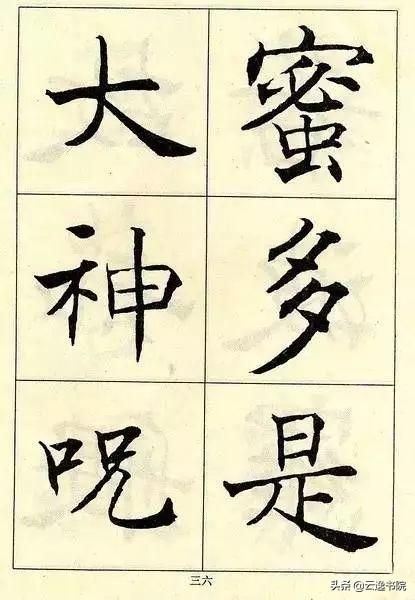 蜜多是
大神咒
三六
头条@云逸书院